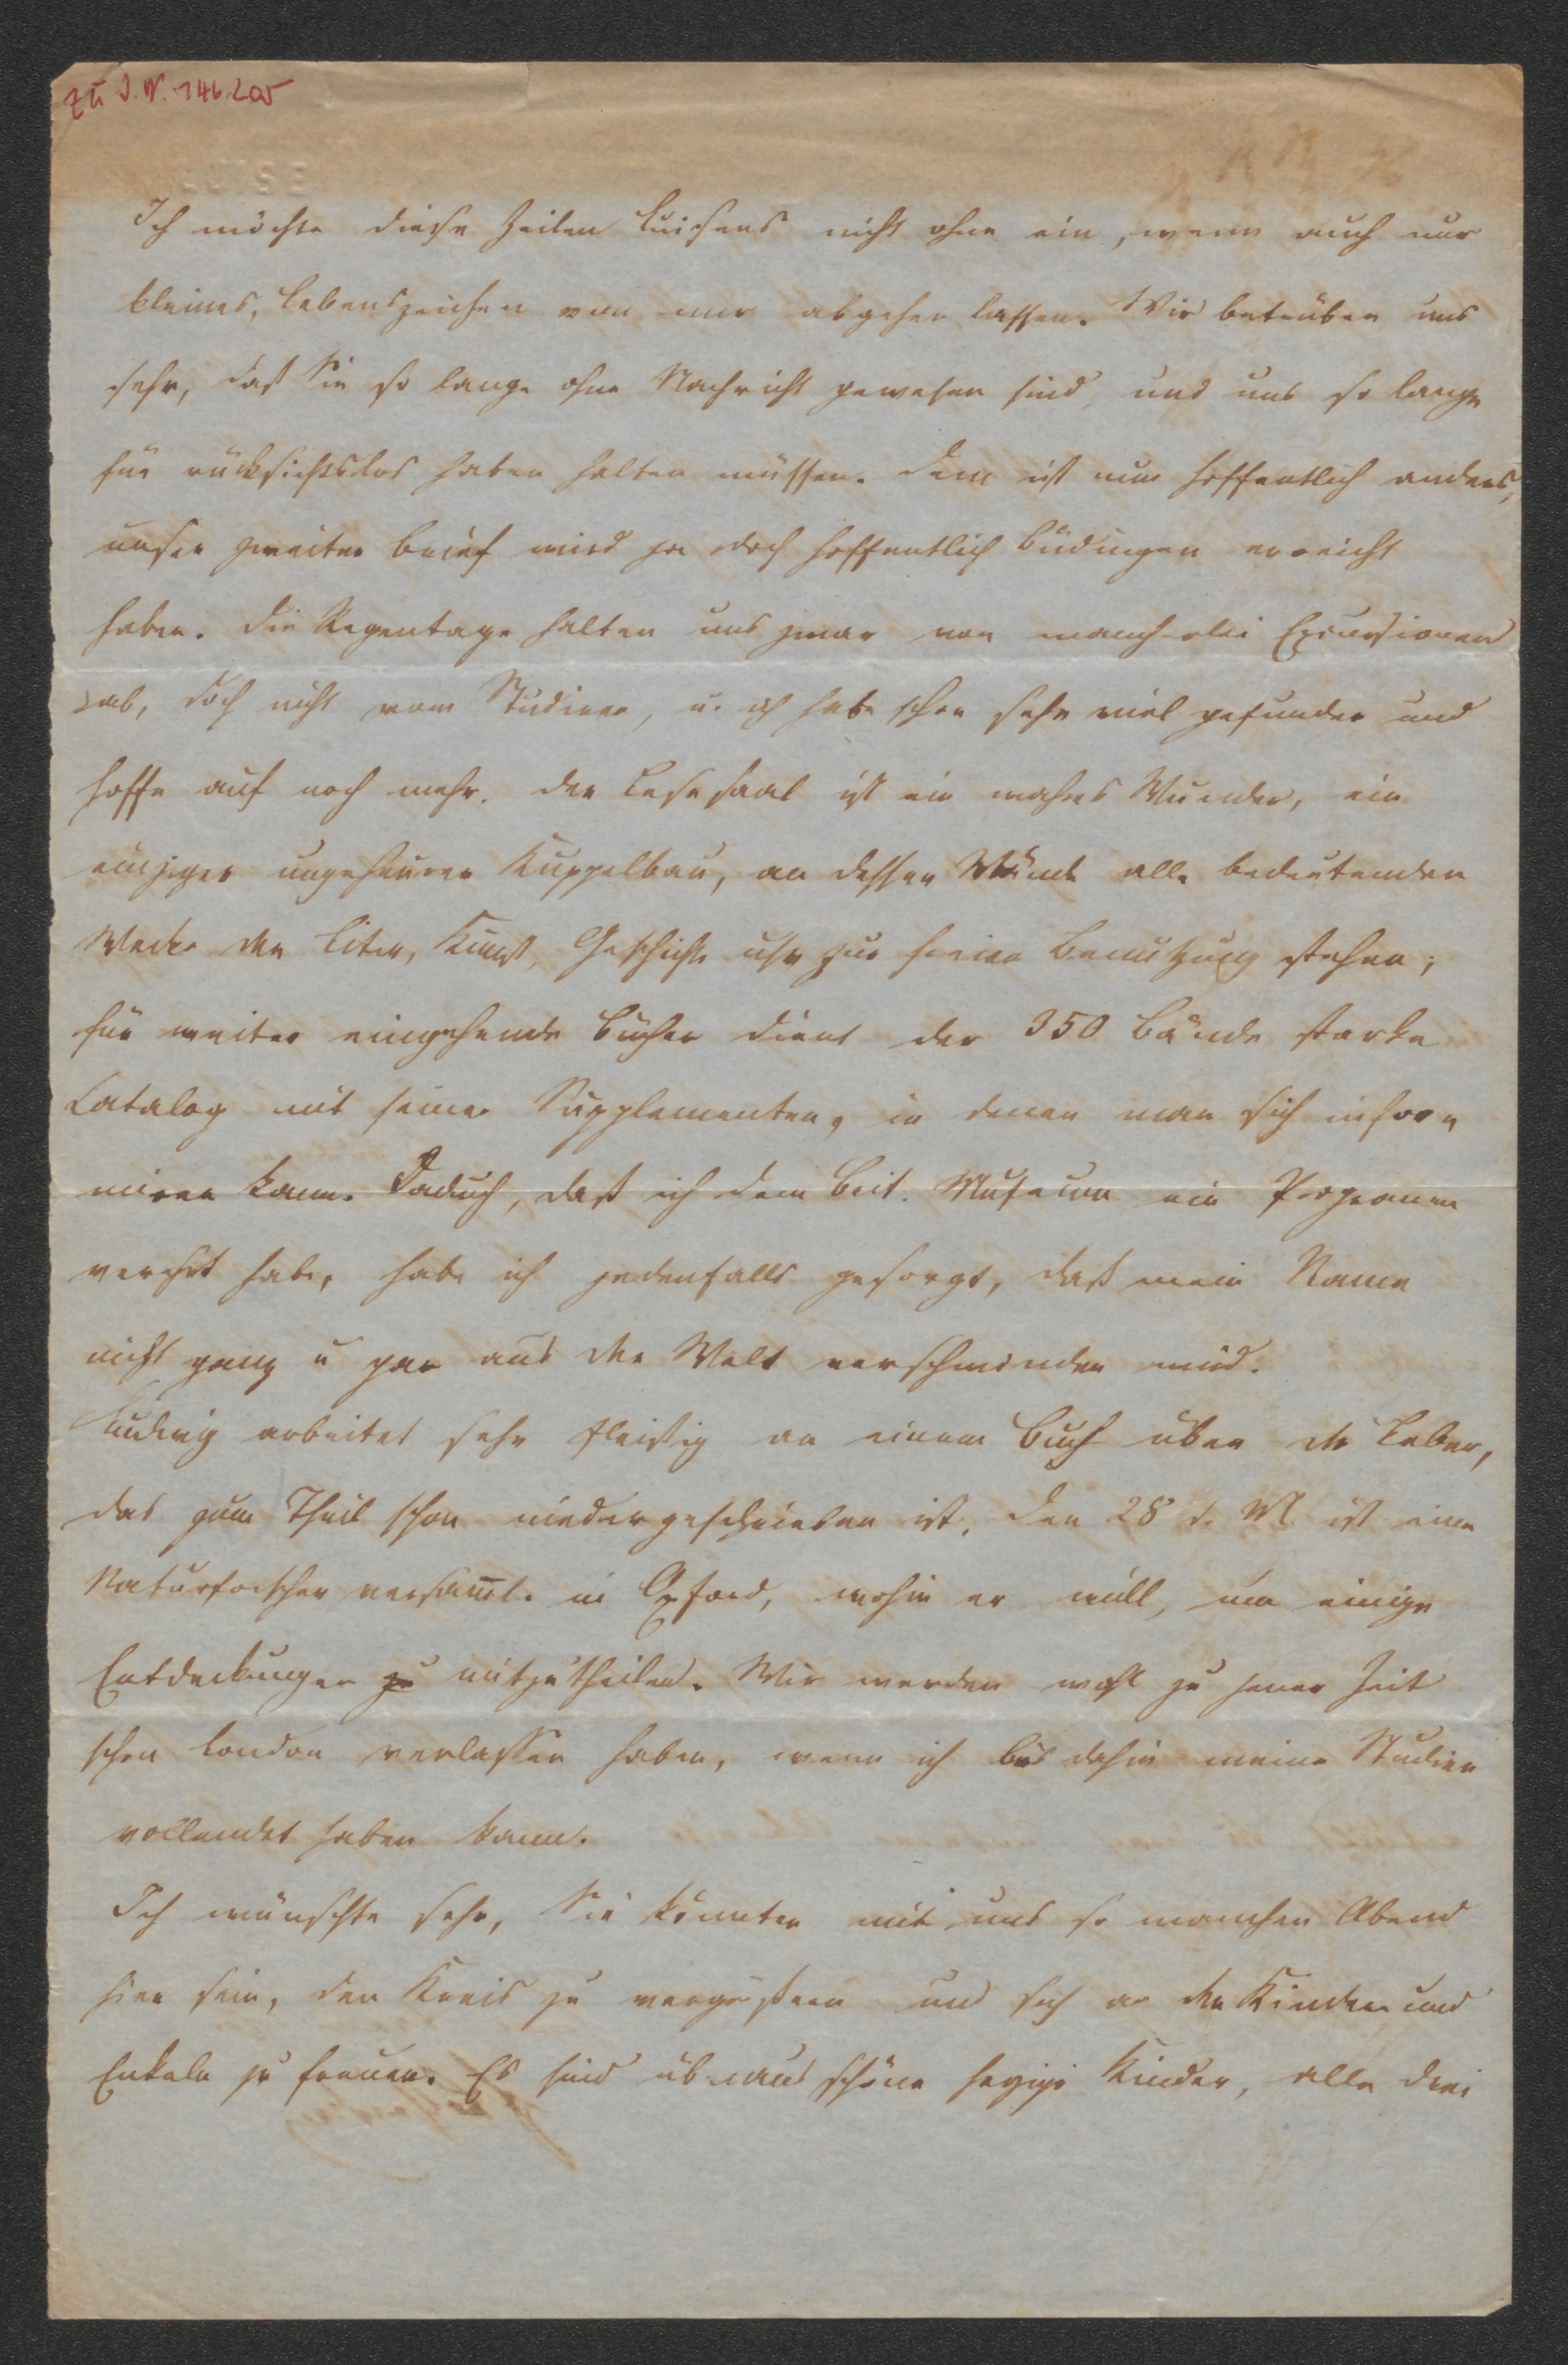 zu I.N. 146.205
LUISE
Ich möchte diese Zeilen Luisens nicht ohne ein, wenn auch nur
kleines, Lebenszeichen von mir abgehen lassen. Wir betrüben uns
sehr, daß Sie so lange ohne Nachricht gewesen sind und uns so lange
für rücksichtslos haben halten müssen. Dem ist nun hoffentlich anders,
unser zweiter Brief wird ja doch hoffentlich Büdingen erreicht
haben. Die Regentage halten uns zwar von mancherlei Excursionen
ab, doch nicht vom Studiren, u. ich habe schon sehr viel gefunden und
hoffe auf noch mehr. Der Lesesaal ist ein wahres Wunder, ein
einziger ungeheurer Kuppelbau, an dessen Wände alle bedeutenden
Werke der Liter, Kunst, Geschichte usw zur freien Benutzung stehen;
für weiter eingehende Bücher dient der 350 Bände starke
Catalog mit seinen Supplementen, in denen man sich infor
miren kann. Daduch, daß ich dem Brit. Museum ein Programm
verehrt habe, habe ich jedenfalls gesorgt, daß mein Name
nicht ganz u gar aus der Welt verschwinden wird.
Ludwig arbeitet sehr fleißig an einem Buch über die Leber,
das zum Theil schon niedergeschrieben ist. Den 28 d. M. ist eine
Naturforscher versaml. in Oxford, wohin er will, um einige
Entdeckungen zu mitzutheilen. Wir werden wohl zu jener Zeit
schon London verlassen haben, wenn ich bis dahin meine Studien
vollendet haben kann.
Ich wünschte sehr, Sie könnten mit uns so manchen Abend
hier sein, den Kreis zu vergrößern und sich an den Kindern und
Enkeln zu freuen. Es sind überaus schöne herzige Kinder, alle drei